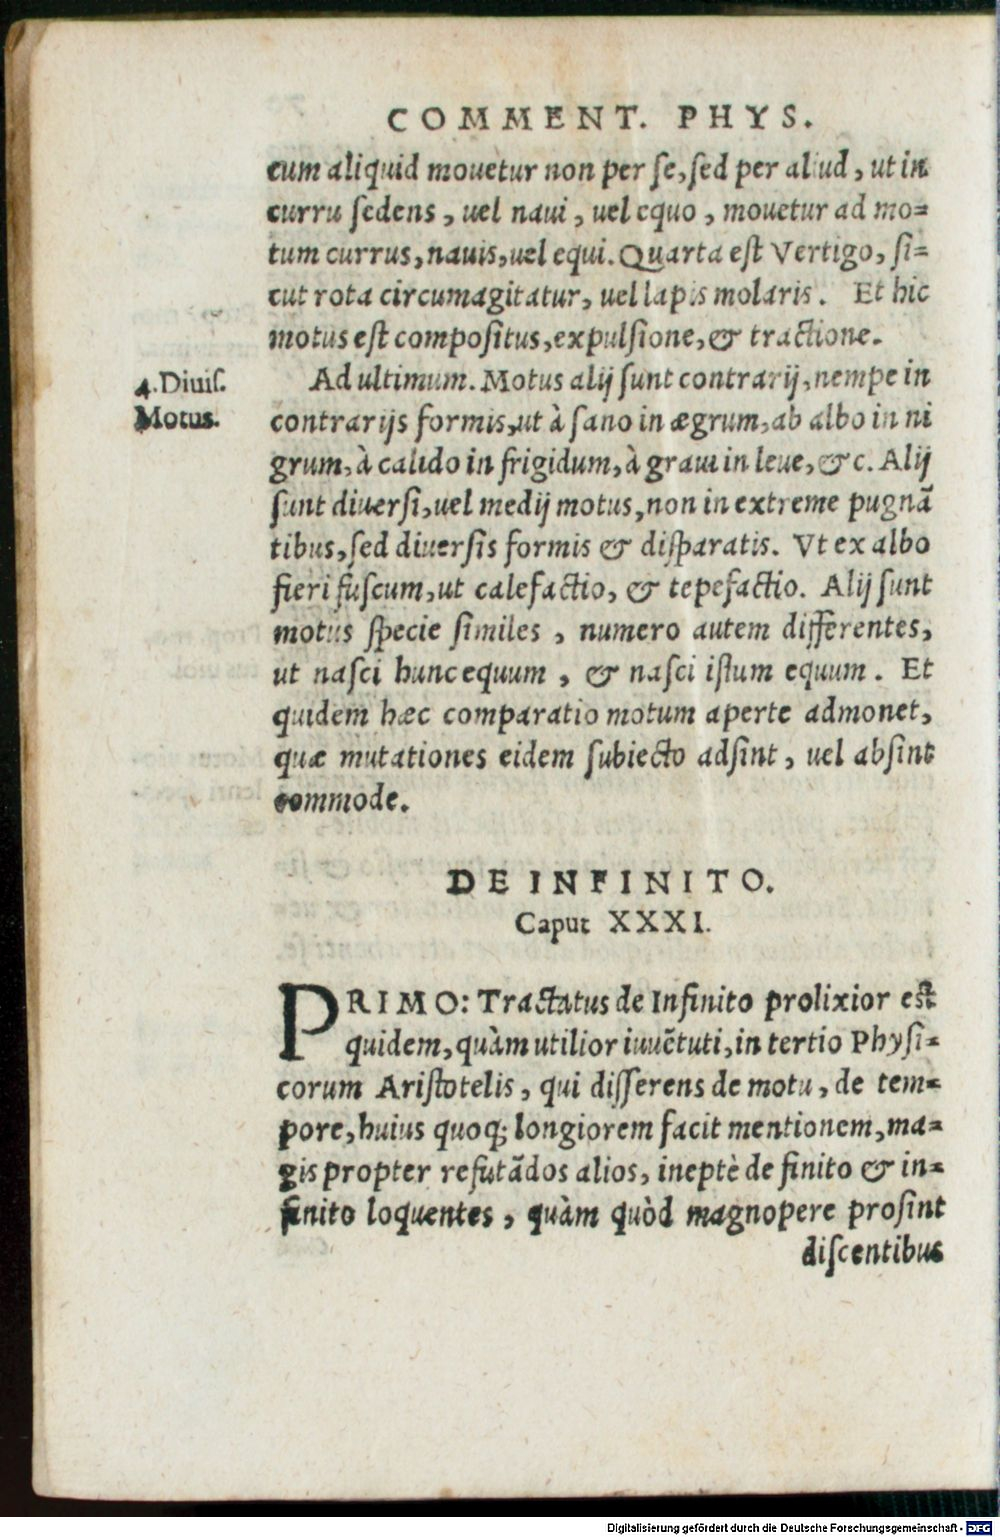 COMMENT. PHYS.
cum aliquid mouetur non per ſe, ſed per aliud, ut in
curru ſedens, uel naui, uel equo, mouetur ad mo=
tum currus, nauis, uel equi. Quarta eſt Vertigo, ſi=
cut rota circumagitatur, uel lapis molaris. Et hic
motus eſt compoſitus, expulſione, & tractione.
4. Diuiſ.
Motus.
Ad ultimum. Motus alij ſunt contrarij, nempe in
contrarijs formis, ut à ſano in ægrum, ab albo in ni
grum, à calido in frigidum, à graui in leue, &c. Alij
ſunt diuerſi, uel medij motus, non in extreme pugnã
tibus, ſed diuerſis formis & diſparatis. Vt ex albo
fieri fuſcum, ut calefactio, & tepefactio. Alij ſunt
motus ſpecie ſimiles, numero autem differentes,
ut naſci hunc equum, & naſci iſtum equum. Et
quidem hæc comparatio motum aperte admonet,
quæ mutationes eidem ſubiecto adſint, uel abſint
commode.
DE INFINITO.
Caput XXXI.
PRIMO: Tractatus de Infinito prolixior eſt
quidem, quàm utilior iuuẽtuti, in tertio Phyſi=
corum Ariſtotelis, qui diſſerens de motu, de tem=
pore, huius quoq; longiorem facit mentionem, ma=
gis propter refutãdos alios, ineptè de finito & in=
finito loquentes, quàm quòd magnopere proſint
diſcentibus
Digitalisierung gefördert durch die Deutsche Forschungsgemeinschaft - DFG